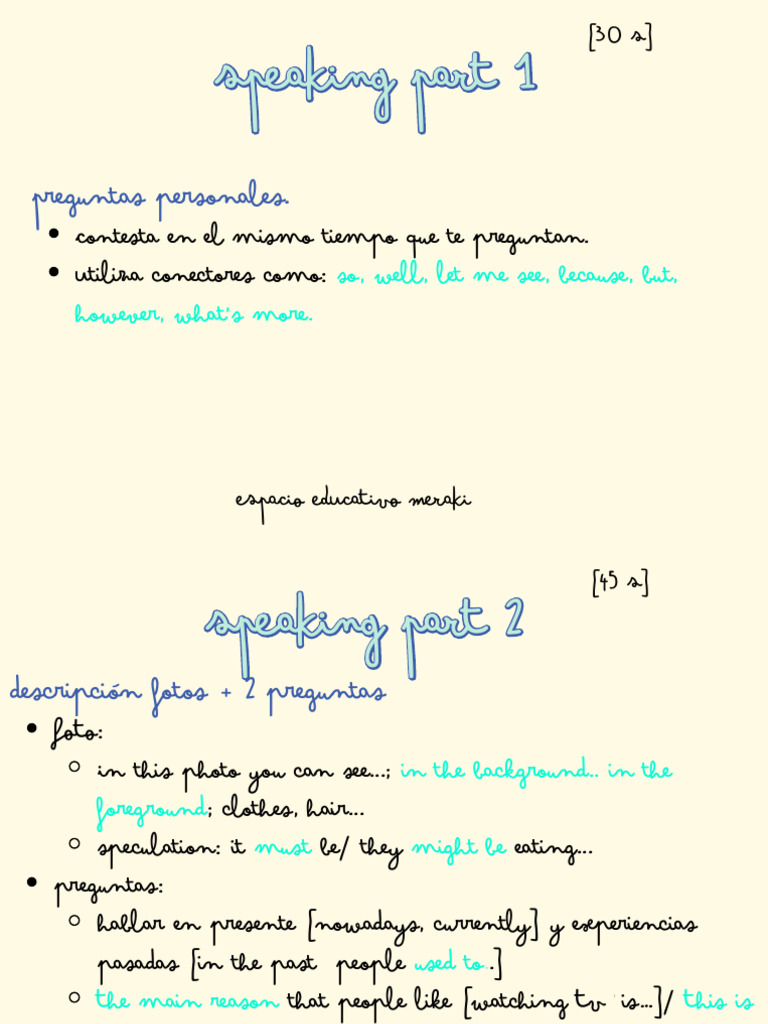 [30 s]
speaking part 1
preguntas personales.
• contesta en el mismo tiempo que te preguntan.
• utiliza conectores como: so, well, let me see, because, but,
however, what's more.
espacio educativo meraki
[45 s]
speaking part 2
descripción fotos + 2 preguntas
• foto:
○ in this photo you can see...; in the background.. in the
foreground; clothes, hair...
○ speculation: it must be/ they might be eating...
• preguntas:
○ hablar en presente [nowadays, currently] y experiencias
pasadas [in the past people used to..]
○ the main reason that people like [watching tv is...]/ this is